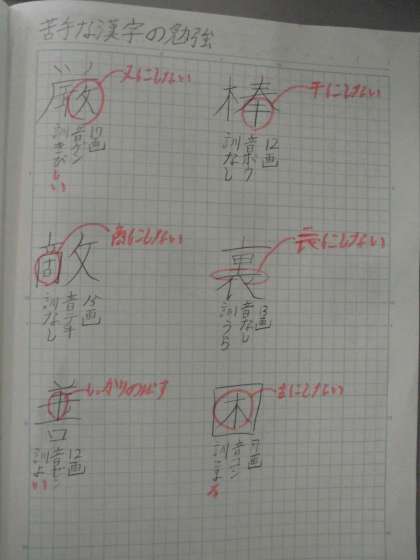 苦手な漢字の勉強
厳
又にしない
17画
音ゲン
訓きびしい
棒
干にしない
12画
音ボウ
訓なし
敵
商にしない
15画
音テキ
訓なし
裏
長にしない
13画
音なし
訓うら
善
しっかりのばす
12画
音ゼン
訓よい
困
7画
音コン
訓こまる